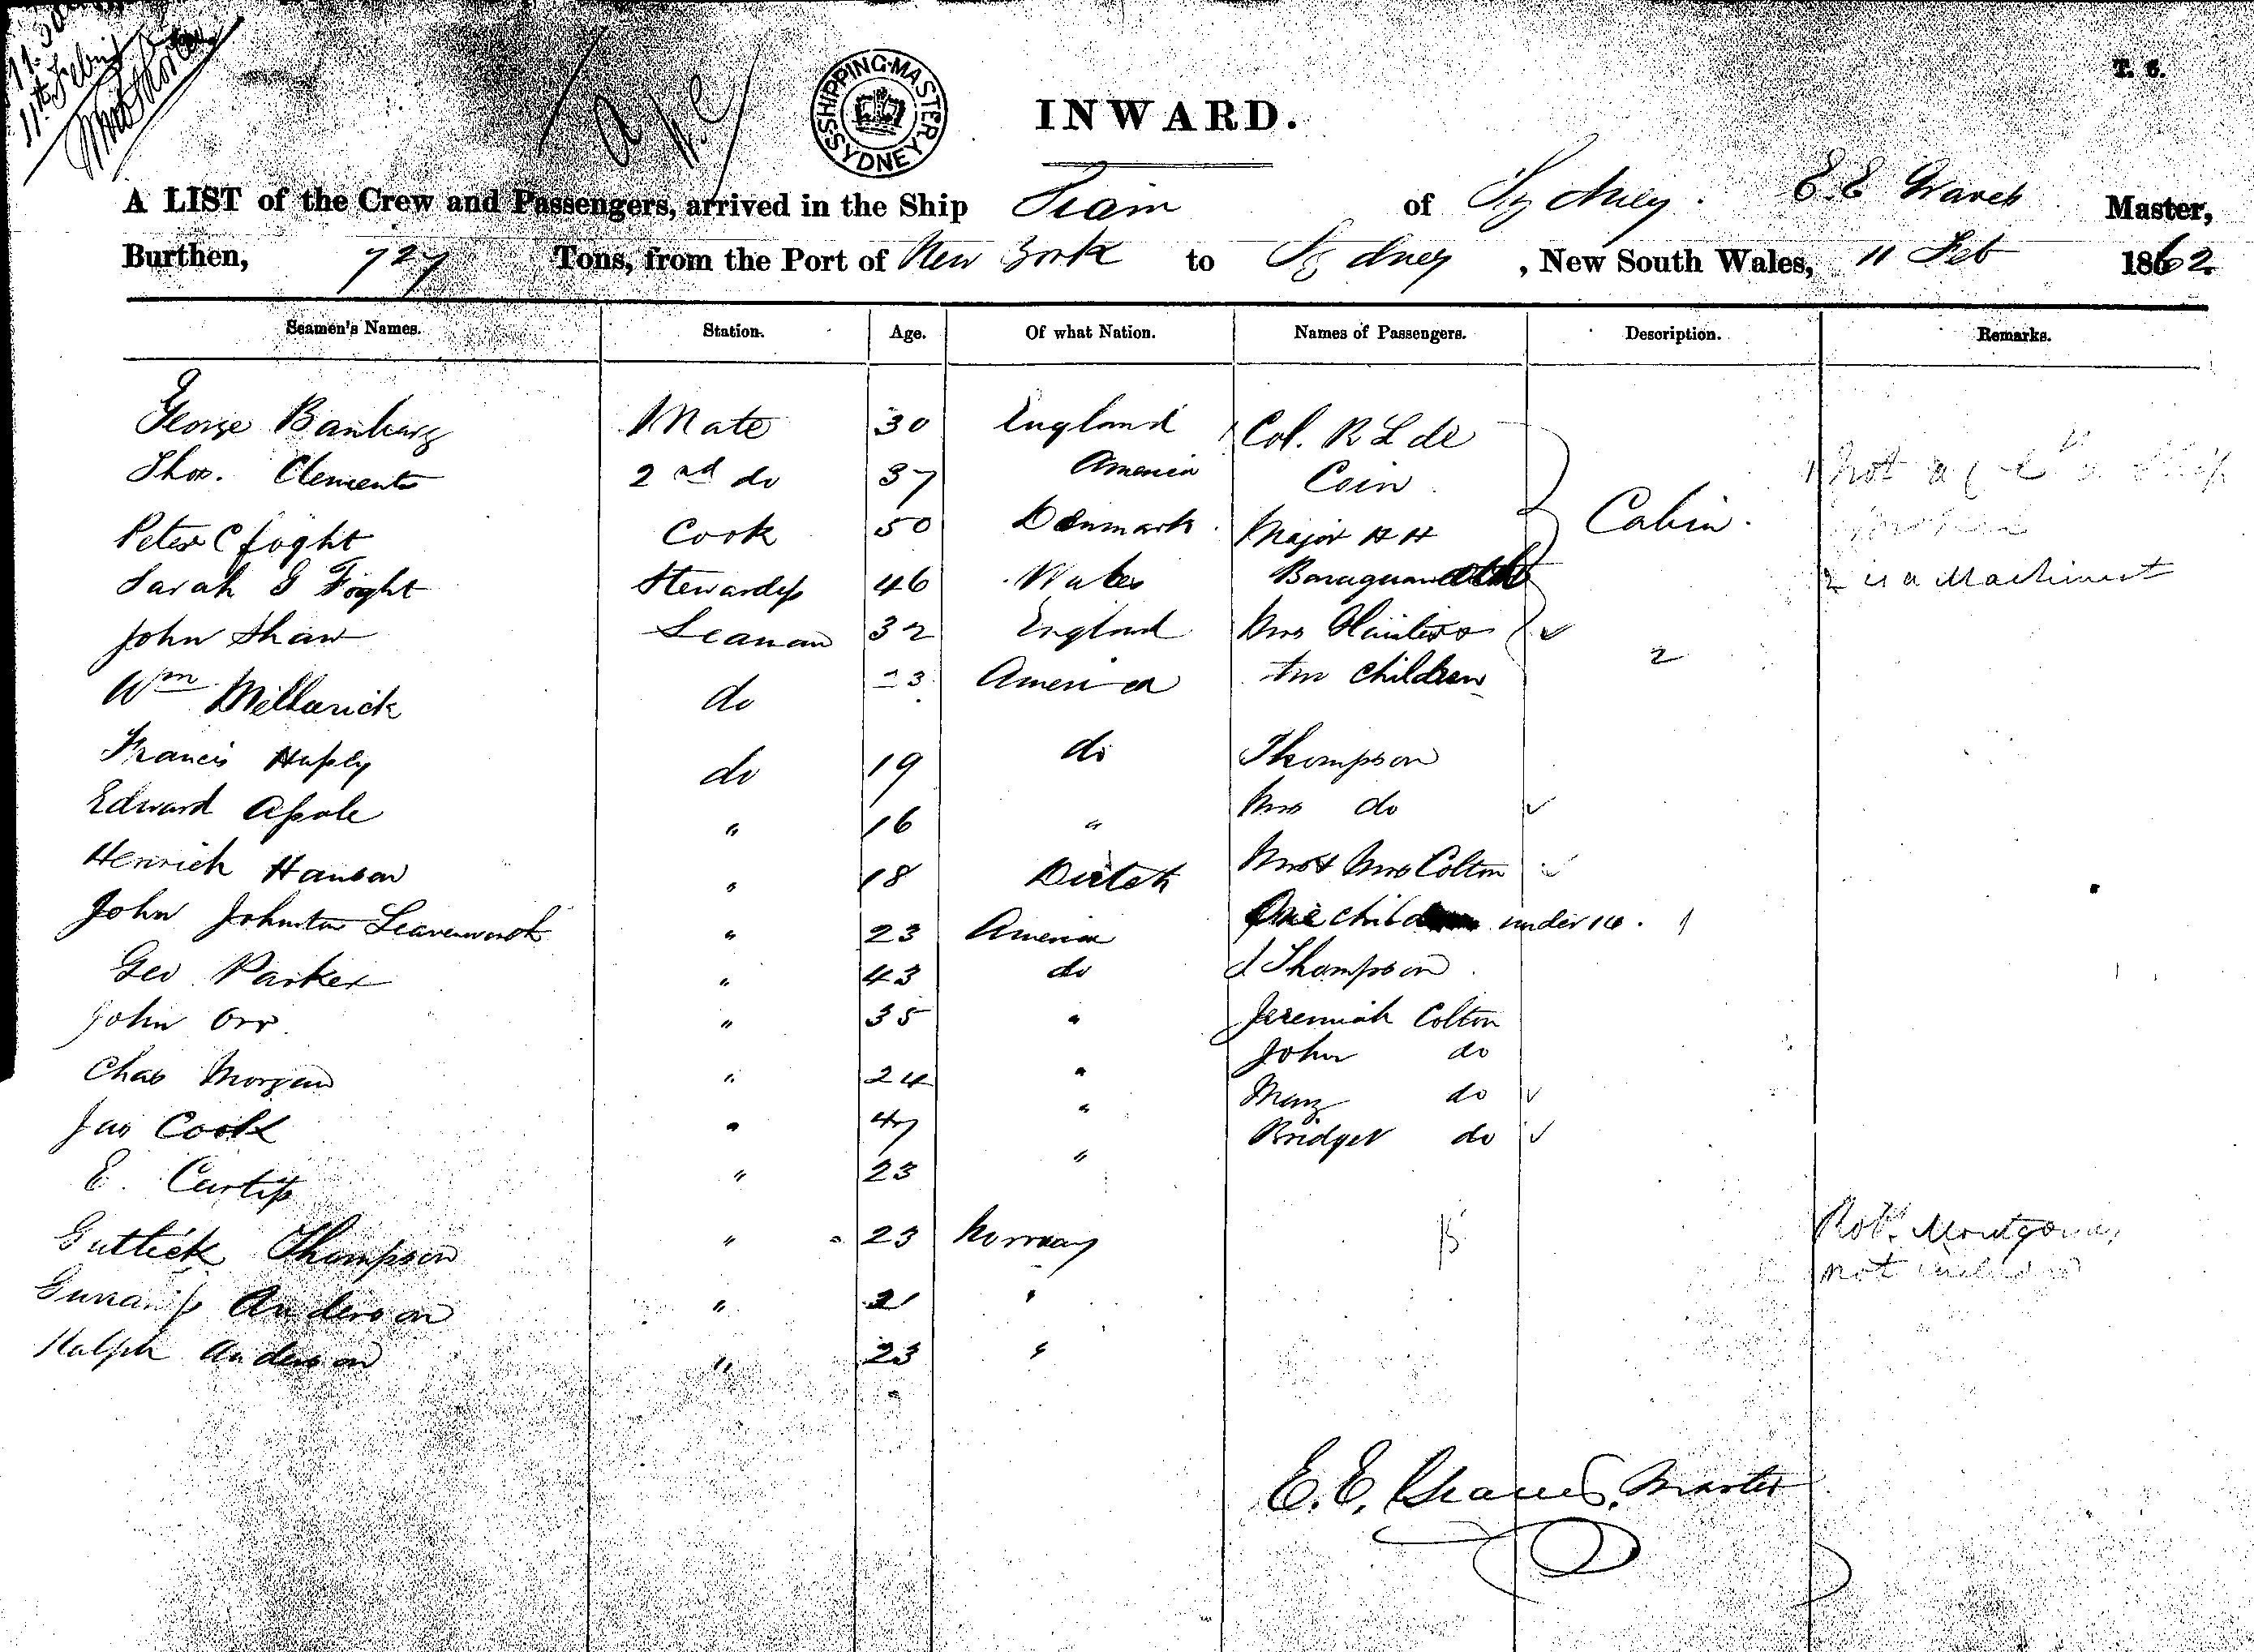 11th Feb
SHIPPING MASTER
SYDNEY
T. 6.
INWARD.
A LIST of the Crew and Passengers, arrived in the Ship Siam of Sydney. E. E Graves Master,
Burthen, 727 Tons, from the Port of New York to Sydney, New South Wales, 11 Feb 1862
Seamen's Names. Station. Age. Of what Nation. Names of Passengers. Description. Remarks.
George Mate 30 England Col. R L de
Thos. Clements 2nd do 37 America Coin Cabin.
Peter C foght Cook 50 Denmark Major H H
Sarah G Foght Stewardess 46 Wales 2 is a Machinist
John Shaw Seaman 32 England Mrs
Wm do America children 2
Francis do 19 do Thompson
Edward do 16 " Mrs do
Henrich Hanson " 18 Dutch Colton
John Johnston Leavenworth " 23 America One child under 14. 1
Geo Parker " 43 do J Thompson
John Orr " 35 " Jeremiah Colton
John do
Chas Morgan " 24 " Mary do
Jas Cook " 47 " Bridget do
E. Curtis " 23 "
Guttick Thompson " 23 Norway Robt.
Anderson " 21 " not
Ralph Anderson " 23 "
E. E. Graves, Master